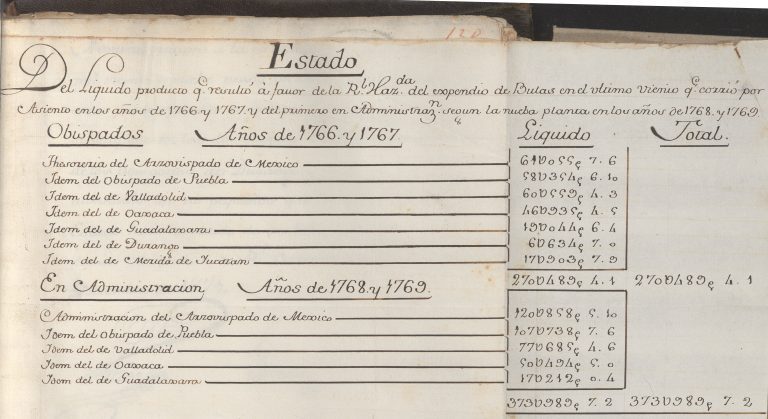 120
Estado
Del Liquido producto q.e resultó à favor de la R.l Haz.da del expendio de Bulas en el ultimo vienio q.e corrió por
Asiento en los años de 1766. y 1767. y del primero en Administraz.n segun la nueba planta en los años de 1768. y 1769.
Obispados Años de 1766. y 1767. Liquido Total.
Thesoreria del Arzovispado de Mexico 61U055p 7. 6
Idem del Obispado de Puebla 58U354p 6. 10
Idem del de Valladolid 60U559p 4. 3
Idem del de Oaxaca 46U935p 4. 5
Idem del de Guadalaxara 19U044p 6. 4
Idem del de Durango 6U634p 7. 0
Idem del de Merida de Yucatan 17U903p 7. 9
270U489p 4. 1 270U489p 4. 1
En Administracion Años de 1768. y 1769.
Administracion del Arzovispado de Mexico 120U858p 5. 10
Idem del Obispado de Puebla 107U738p 7. 6
Idem del de Valladolid 77U685p 4. 6
Idem del de Oaxaca 50U494p 5. 0
Idem del de Guadalaxara 17U212p 0. 4
373U989p 7. 2 373U989p 7. 2